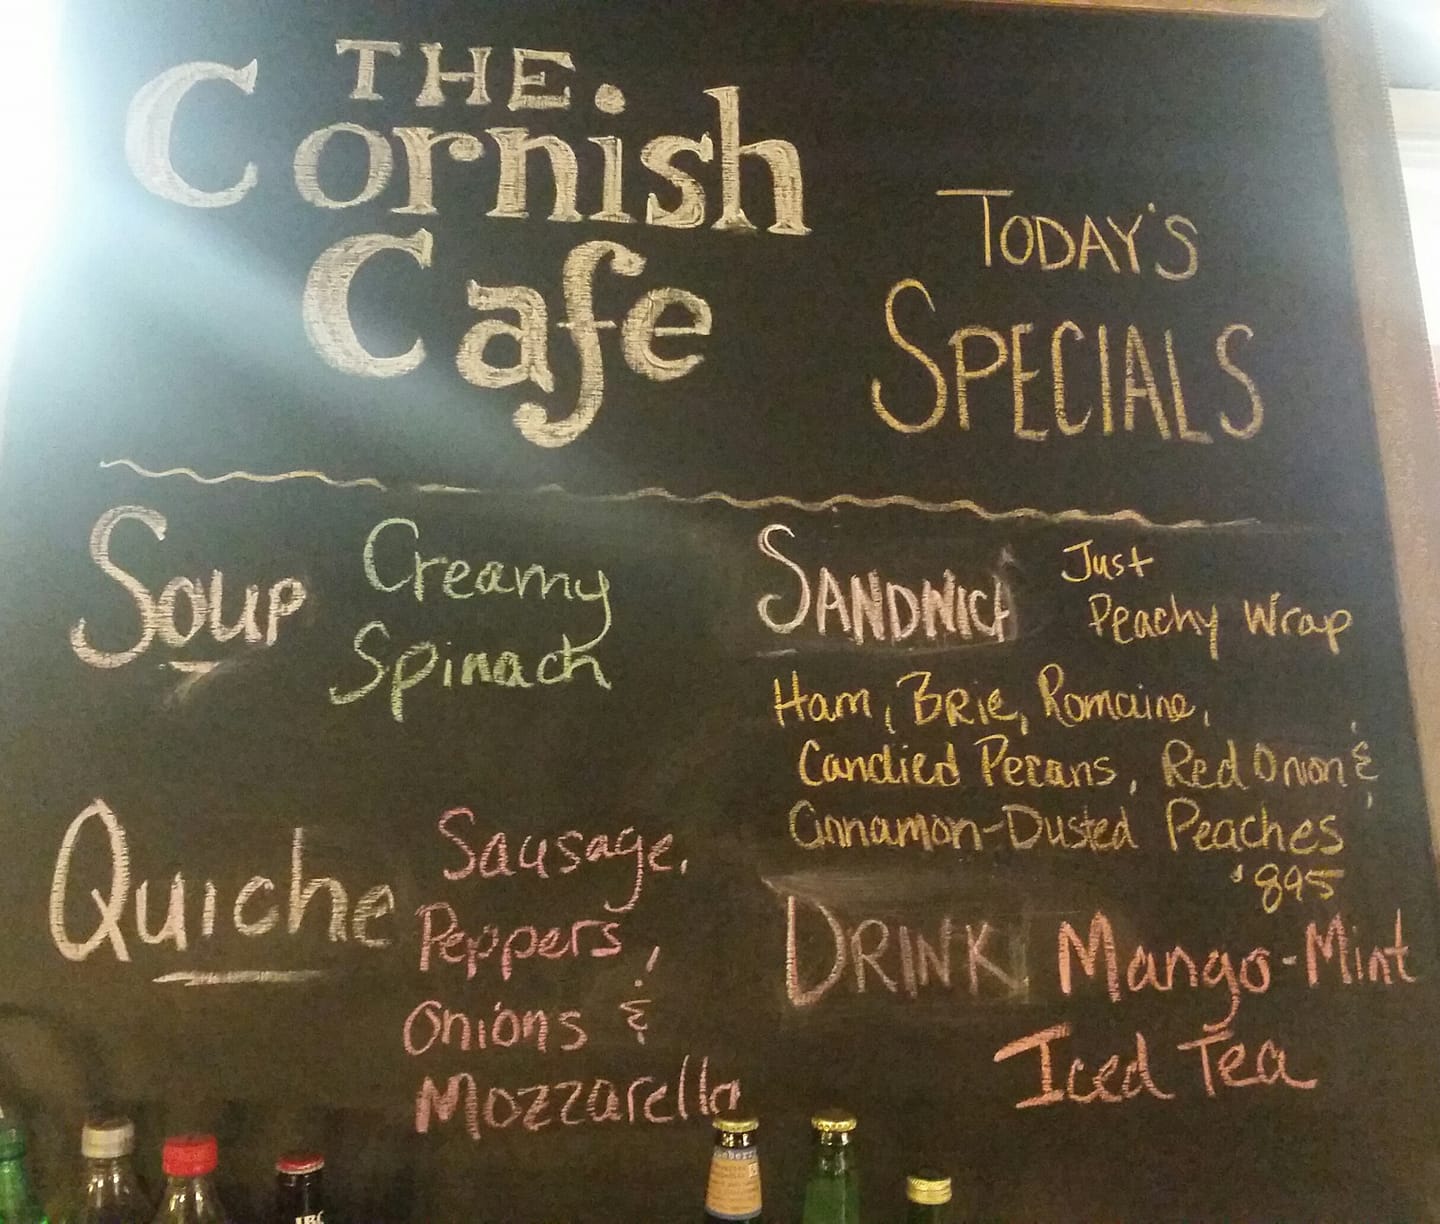 THE
Cornish
Cafe
TODAY'S
SPECIALS
SOUP
Creamy
Spinach
SANDWICH
Just
Peachy Wrap
Ham, Brie, Romaine,
Candied Pecans, Red Onion &
Cinnamon-Dusted Peaches
$8.95
QUICHE
Sausage,
Peppers,
Onions &
Mozzarella
DRINK
Mango-Mint
Iced Tea
IBC